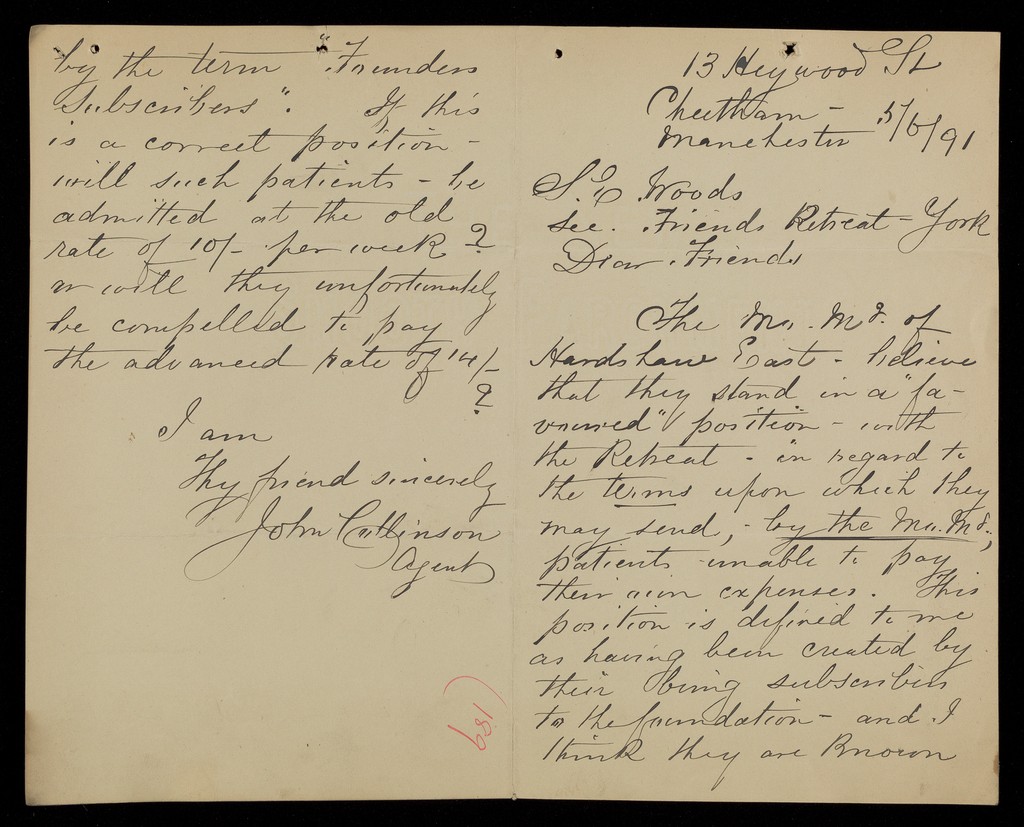 13 Heywood St
Cheetham -
Manchester 5/6/91
S. E Woods
see. Friends Retreat - York
Dear Friends
The Mo. Mg. of
Hardshaw East - believe
that they stand in a "fa-
voured" position - with
the Retreat - in regard to
the terms upon which they
may send, - by the Mo. Mg.,
patients unable to pay
their own expenses. This
position is defined to me
as having been created by
their being subscribers
to the foundation - and I
think they are known
by the term "Founders
Subscribers". If this
is a correct position -
will such patients - be
admitted at the old
rate of 10/- per week ?
or will they unfortunately
be compelled to pay
the advanced rate of 14/-
?
I am
Thy friend sincerely
John
Agent
189)